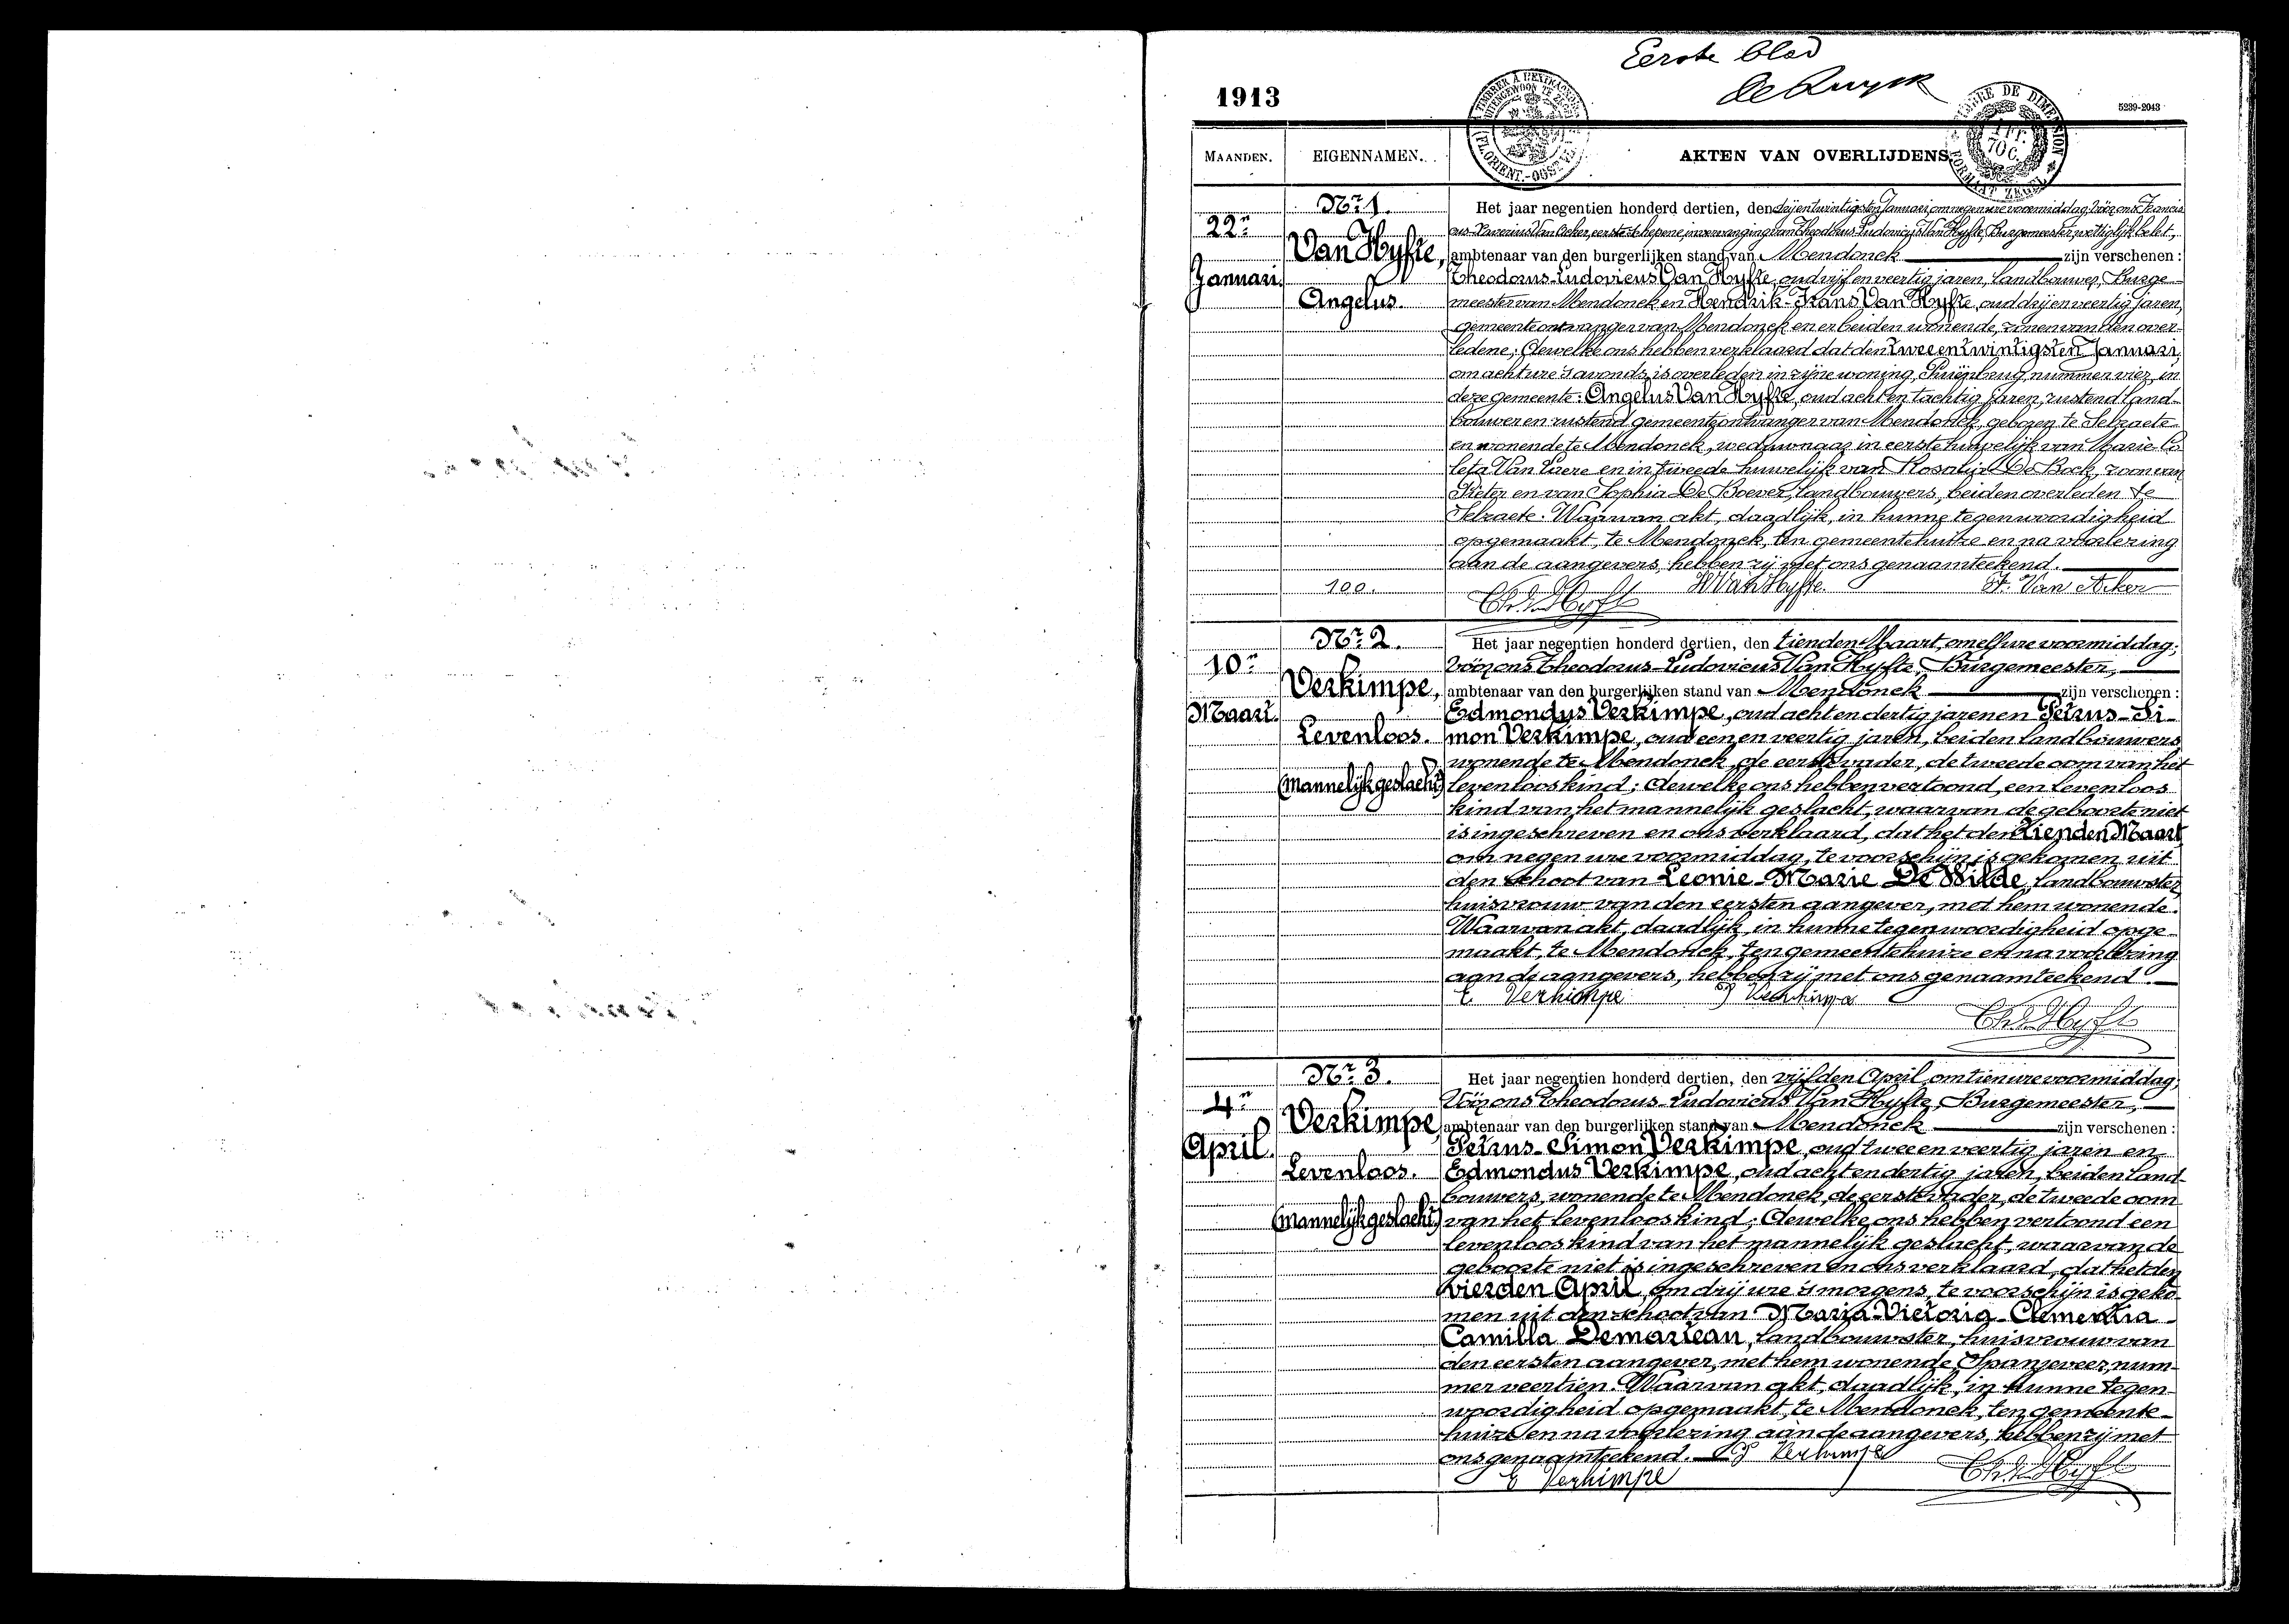 Eerste blad
De Ruyck
1913
TIMBRE A L'EXTRAORD
UITGEWOON TE ZEGEL
FL. ORIENT.-OOST VL.
TIMBRE DE DIMENSION
1 FR.
70 C.
FORMAAT ZEGEL
5239-2043
MAANDEN.
EIGENNAMEN.
AKTEN VAN OVERLIJDENS
Nr. 1.
22n
Januari.
Van Hyfte,
Angelus.
100.
Het jaar negentien honderd dertien, den drijentwintigsten Januari, om negen ure voormiddag, vóór ons Francis
cus-Xaverius Van Acker, eerste schepene, in vervanging van Theodorus Ludovicus Van Hyfte, Burgemeester, wettiglijk belet,
ambtenaar van den burgerlijken stand van Mendonck zijn verschenen :
Theodorus-Ludovicus Van Hyfte, oud vijf en veertig jaren, landbouwer, Burge-
meester van Mendonck en Hendrik-Frans Van Hyfte, oud drij en veertig jaren,
gemeenteontvanger van Mendonck en er beiden wonende, zonen van den over-
ledene; dewelke ons hebben verklaard dat den tweeentwintigsten Januari,
om acht ure 's avonds, is overleden in zijne woning, Puijenbrug, nummer vier, in
deze gemeente: Angelus Van Hyfte, oud acht en tachtig jaren, rustend land-
bouwer en rustend gemeenteontvanger van Mendonck, geboren te Selzaete
en wonende te Mendonck, weduwnaar in eerste huwelijk van Marie-Co-
leta Van Laere en in tweede huwelijk van Rosalie De Bock, zoon van
Pieter en van Sophia De Boever, landbouwers, beiden overleden te
Selzaete. Waarvan akt, daadlijk, in hunne tegenwoordigheid
opgemaakt, te Mendonck, ten gemeentehuize en na voorlezing
aan de aangevers, hebben zij met ons genaamteekend.
H Van Hyfte. F. Van Acker
Th. V. Hyfte
Nr. 2.
10n
Maart.
Verkimpe,
Levenloos.
(mannelijk geslacht)
Het jaar negentien honderd dertien, den tienden Maart, om elf ure voormiddag,
vóór ons Theodorus-Ludovicus Van Hyfte, Burgemeester,
ambtenaar van den burgerlijken stand van Mendonck zijn verschenen :
Edmondus Verkimpe, oud acht en dertig jaren en Petrus-Si-
mon Verkimpe, oud een en veertig jaren, beiden landbouwers
wonende te Mendonck, de eerste vader, de tweede oom van het
levenloos kind; dewelke ons hebben vertoond, een levenloos
kind van het mannelijk geslacht, waarvan de geboorte niet
is ingeschreven en ons verklaard, dat het den tienden Maart,
om negen ure voormiddag, te voorschijn is gekomen uit
den schoot van Leonie-Marie De Wilde, landbouwster,
huisvrouw van den eersten aangever, met hem wonende.
Waarvan akt, daadlijk, in hunne tegenwoordigheid opge-
maakt, te Mendonck, ten gemeentehuize en na voorlezing
aan de aangevers, hebben zij met ons genaamteekend.
E Verkimpe P Verkimpe
Th. V. Hyfte
Nr. 3.
4n
April.
Verkimpe,
Levenloos.
(mannelijk geslacht)
Het jaar negentien honderd dertien, den vijfden April, om tien ure voormiddag,
Vóór ons Theodorus-Ludovicus Van Hyfte, Burgemeester,
ambtenaar van den burgerlijken stand van Mendonck zijn verschenen :
Petrus-Simon Verkimpe, oud twee en veertig jaren en
Edmondus Verkimpe, oud acht en dertig jaren, beiden land-
bouwers, wonende te Mendonck, de eerste vader, de tweede oom
van het levenloos kind; dewelke ons hebben vertoond een
levenloos kind van het mannelijk geslacht, waarvan de
geboorte niet is ingeschreven en ons verklaard, dat het den
vierden April, om drij ure 's morgens, te voorschijn is geko-
men uit den schoot van Maria-Victoria-Clementia-
Camilla Demarteau, landbouwster, huisvrouw van
den eersten aangever, met hem wonende, Spanjeveer, num-
mer veertien. Waarvan akt, daadlijk, in hunne tegen-
woordigheid opgemaakt, te Mendonck, ten gemeente-
huize en na voorlezing aan de aangevers, hebben zij met
ons genaamteekend. P Verkimpe
E Verkimpe Th. V. Hyfte